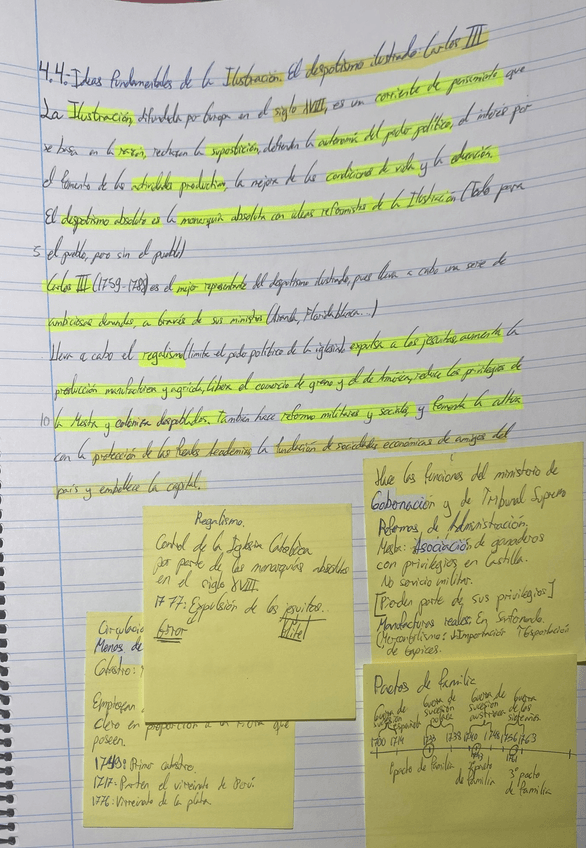 4.4: Ideas fundamentales de la Ilustración. El despotismo ilustrado: Carlos III
La Ilustración, difundida por Europa en el siglo XVIII, es un corriente de pensamiento que
se basa en la razón, rechazan la superstición, defienden la autonomía del poder político, el interés por
el fomento de las actividades productivas, la mejora de las condiciones de vida y la educación.
El despotismo absoluto es la monarquía absoluta con ideas reformistas de la Ilustración (Todo para
5 el pueblo, pero sin el pueblo)
Carlos III (1759-1788) es el mejor representante del despotismo ilustrado, pues lleva a cabo una serie de
ambiciosas a través de sus ministros (Aranda, Floridablanca...)
Lleva a cabo el regalismo (limita el poder político de la iglesia) expulsa a los jesuitas, aumenta la
producción manufacturera y agrícola, libera el comercio de grano y el de América, reduce los privilegios de
10 la Mesta y coloniza despoblados. También hace reformas militares y sociales y fomenta la cultura
con la protección de las Reales Academias, la fundación de sociedades económicas de amigos del
país y embellece la capital.
Regalismo.
Control de la Iglesia Católica
por parte de las monarquías absolutas
en el siglo XVIII.
1777: Expulsión de los jesuitas.
Hace las funciones del ministerio de
Gobernación y de Tribunal Supremo
Reformas de Administración,
Mesta: Asociación de ganaderos
con privilegios en Castilla.
No servicio militar.
[Pierden parte de sus privilegios]
Manufacturas reales: En
(Mercantilismo: ↓Importación ↑Exportación
de tapices.
Circulació
Menos de
Catastro:
Emplean
clero en proporción a la que
poseen.
1749: Primer catastro
1717: Parten el virreinato de Perú.
1776: Virreinato de la plata.
Pactos de Familia
Guerra de Guerra de Guerra de Guerra
sucesión sucesión sucesión de los
española polaca austriaca siete años
1700 1714 1733 1738 1740 1743 1748 1756 1761 1763
1º pacto de Familia 2º pacto de Familia 3º pacto
de Familia